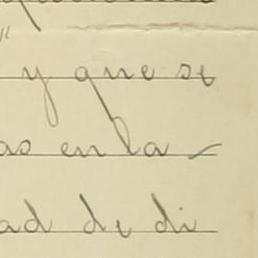 y que se
as en la
ad de di